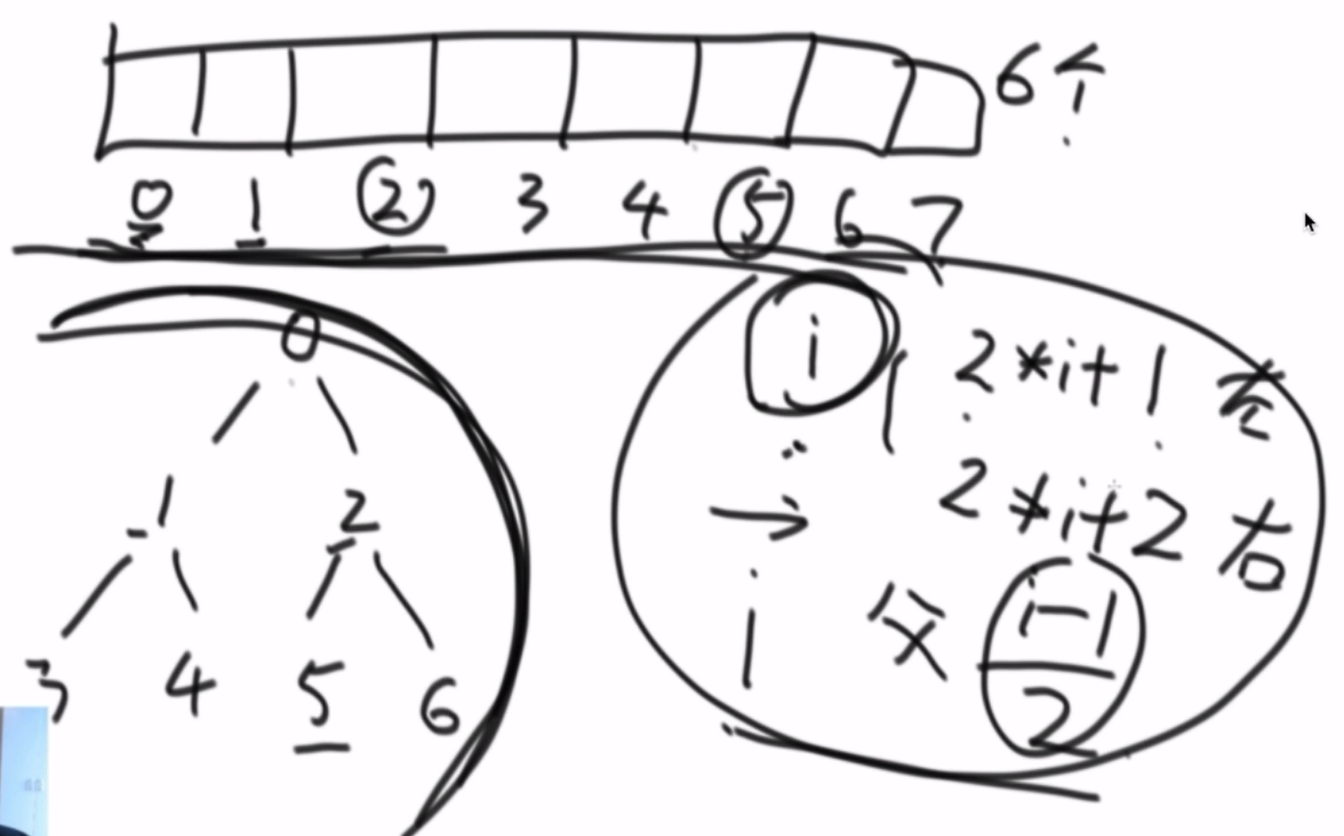 6个
0 1 2 3 4 5 6 7
0
1 2
3 4 5 6
i
2*i+1 左
2*i+2 右
父 i-1
2